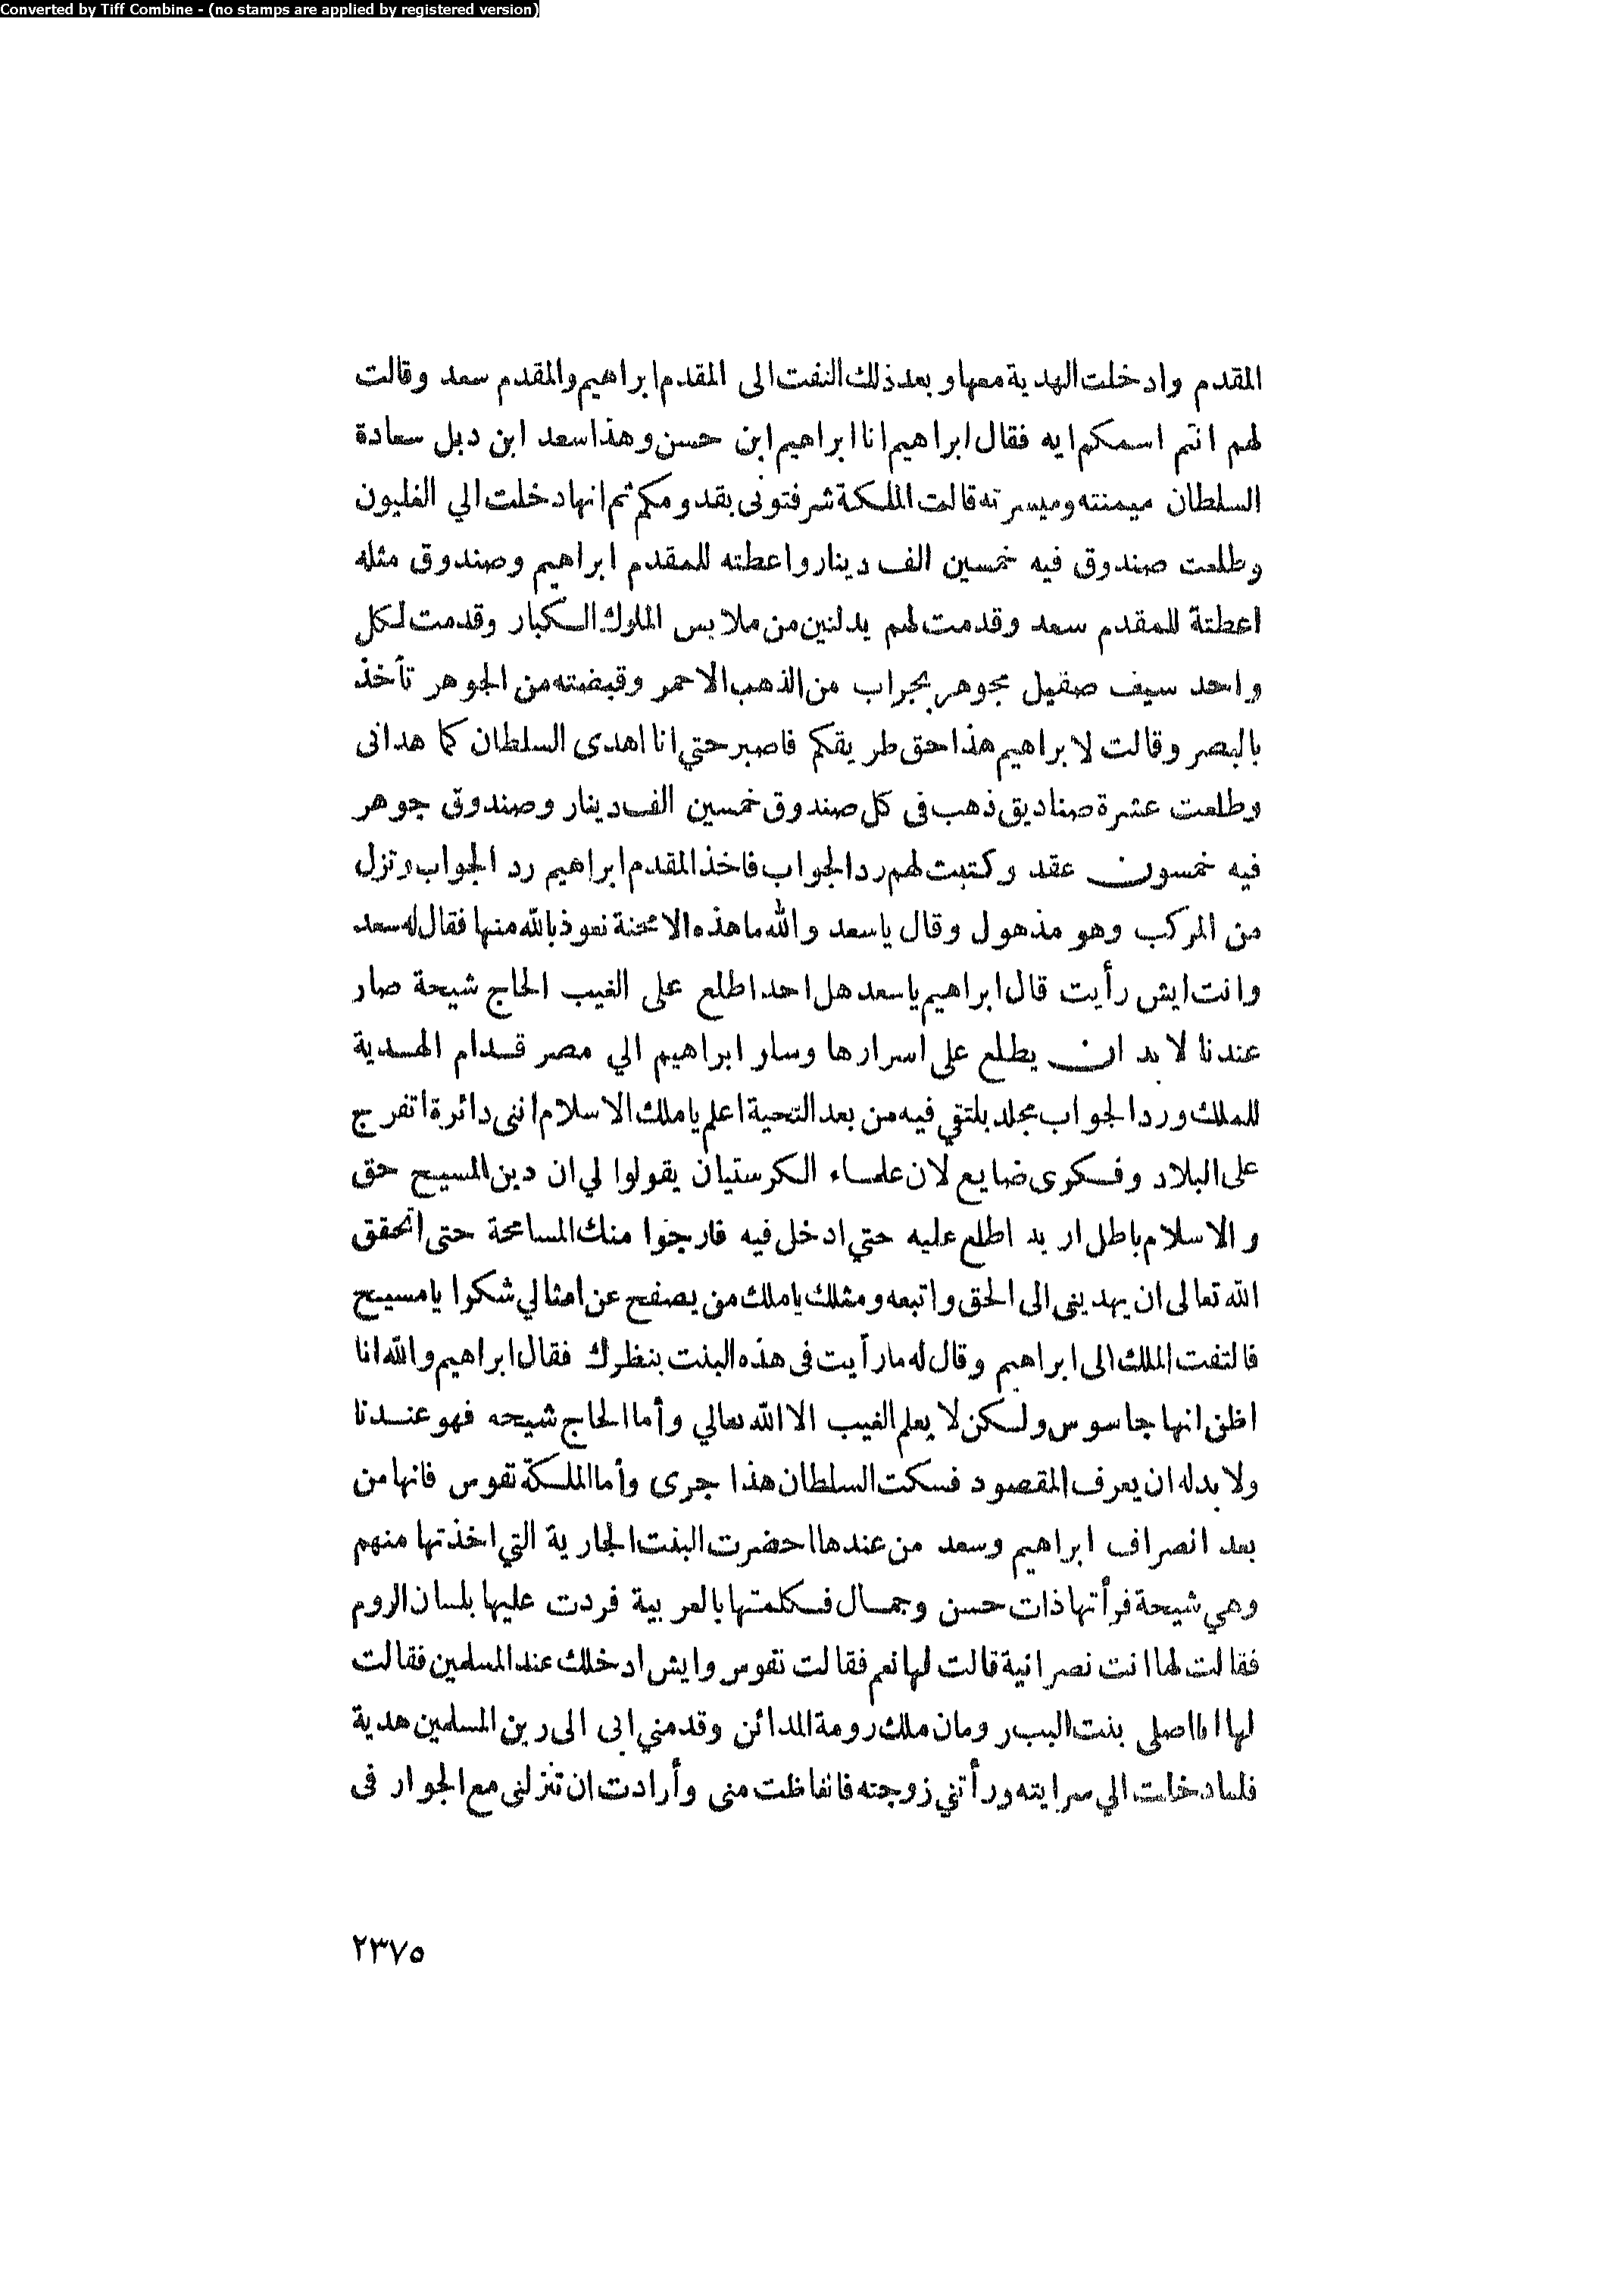 Converted by Tiff Combine - (no stamps are applied by registered version)
المقدم وادخلت الهدية معها وبعد ذلك التفت الى المقدم ابراهيم والمقدم سعد وقالت
لهم انتم اسمكم ايه فقال ابراهيم انا ابراهيم ابن حسن وهذا سعد ابن دبل سعادة
السلطان ميمنته وميسرته قالت الملكة شرفتونى بقدومكم ثم انها دخلت الي الغليون
وطلعت صندوق فيه خمسين الف دينار واعطته للمقدم ابراهيم وصندوق مثله
اعطتة للمقدم سعد وقدمت لهم بدلتين من ملابس الملوك الكبار وقدمت لكل
واحد سيف صقيل مجوهر بجراب من الذهب الاحمر وقبضته من الجوهر تأخذ
بالبصر وقالت لابراهيم هذا حق طريقكم فاصبر حتي انا اهدى السلطان كما هدانى
وطلعت عشرة صناديق ذهب فى كل صندوق خمسين الف دينار وصندوق جوهر
فيه خمسون عقد وكتبت لهم رد الجواب فاخذ المقدم ابراهيم رد الجواب ونزل
من المركب وهو مذهول وقال ياسعد والله ماهذه الا محنة نعوذ بالله منها فقال له سعد
وانت ايش رأيت قال ابراهيم ياسعد هل احد اطلع على الغيب الحاج شيحة صار
عندنا لا بد ان يطلع على اسرارها وسار ابراهيم الي مصر قدام الهدية
للملك ورد الجواب مجلد بلتقي فيه من بعد التحية اعلم ياملك الاسلام اننى دائرة اتفرج
على البلاد وفكرى ضايع لان علماء الكرستيان يقولوا لي ان دين المسيح حق
والاسلام باطل اريد اطلع عليه حتي ادخل فيه فارجوا منك المسامحة حتى اتحقق
الله تعالى ان يهدينى الى الحق واتبعه ومثلك ياملك من يصفح عن امثالي شكوا يامسيح
فالتفت الملك الى ابراهيم وقال له مارأيت فى هذه البنت بنظرك فقال ابراهيم والله انا
اظن انها جاسوس ولكن لا يعلم الغيب الا الله تعالي وأما الحاج شيحه فهو عندنا
ولا بد له ان يعرف المقصود فسكت السلطان هذا جرى وأما الملكة تقوس فانها من
بعد انصراف ابراهيم وسعد من عندها احضرت البنت الجارية التي اخذتها منهم
وهي شيحة فرأتها ذات حسن وجمال فكلمتها بالعربية فردت عليها بلسان الروم
فقالت لها انت نصرانية قالت لها نعم فقالت تقوس وايش ادخلك عند المسلمين فقالت
لها انا اصلى بنت البب رومان ملك رومة المدائن وقدمني ابى الى رين المسلمين هدية
فلما دخلت الي سرايته ورأتني زوجته فانغاظت منى وأرادت ان تنزلنى مع الجوار فى
٢٣٧٥